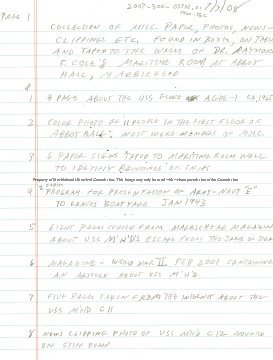 PAGE 1
COLLECTION OF MISC. PAPER, PHOTOS, NEWS-
CLIPPINGS ETC, FOUND IN BOXES, ON TABLES
AND TAPED TO THE WALLS OF DR. RAYMOND
F. COLE'S MARITIME ROOM AT ABBOT
HALL, MARBLEHEAD
#
1 4 PAGE ABOUT THE USS GLOVER AGDE-1 CA, 1965
2 COLOR PHOTO OF 11 PEOPLE IN THE FIRST FLOOR OF
ABBOT HALL. MOST WERE MEMBERS OF
3 6 PAPER SIGNS TAPED TO MARITIME ROOM WALL
TO IDENTIFY PAINTINGS OF SHIPS
Property of Marblehead Historical Commission. This image may only be used with written permission of the Commission.
4 2 COPIES
"PROGRAM FOR PRESENTATION OF ARMY-NAVY "E"
TO GRAVES BOATYARD JAN 1943
5 EIGHT PAGES COPIED FROM MARBLEHEAD MAGAZINE
ABOUT USS M'H'D'S ESCAPE FROM THE JAWS OF DEATH
6 MAGAZINE - WORLD WAR II FEB 2001 CONTAINING
AN ARTICLE ABOUT USS M'H'D.
7 FIVE PAGES TAKEN FROM THE INTERNET ABOUT THE
USS MHD C11
8 NEWS CLIPPING PHOTO OF USS MHD C12 MOUNTED
ON STIFF BOARD